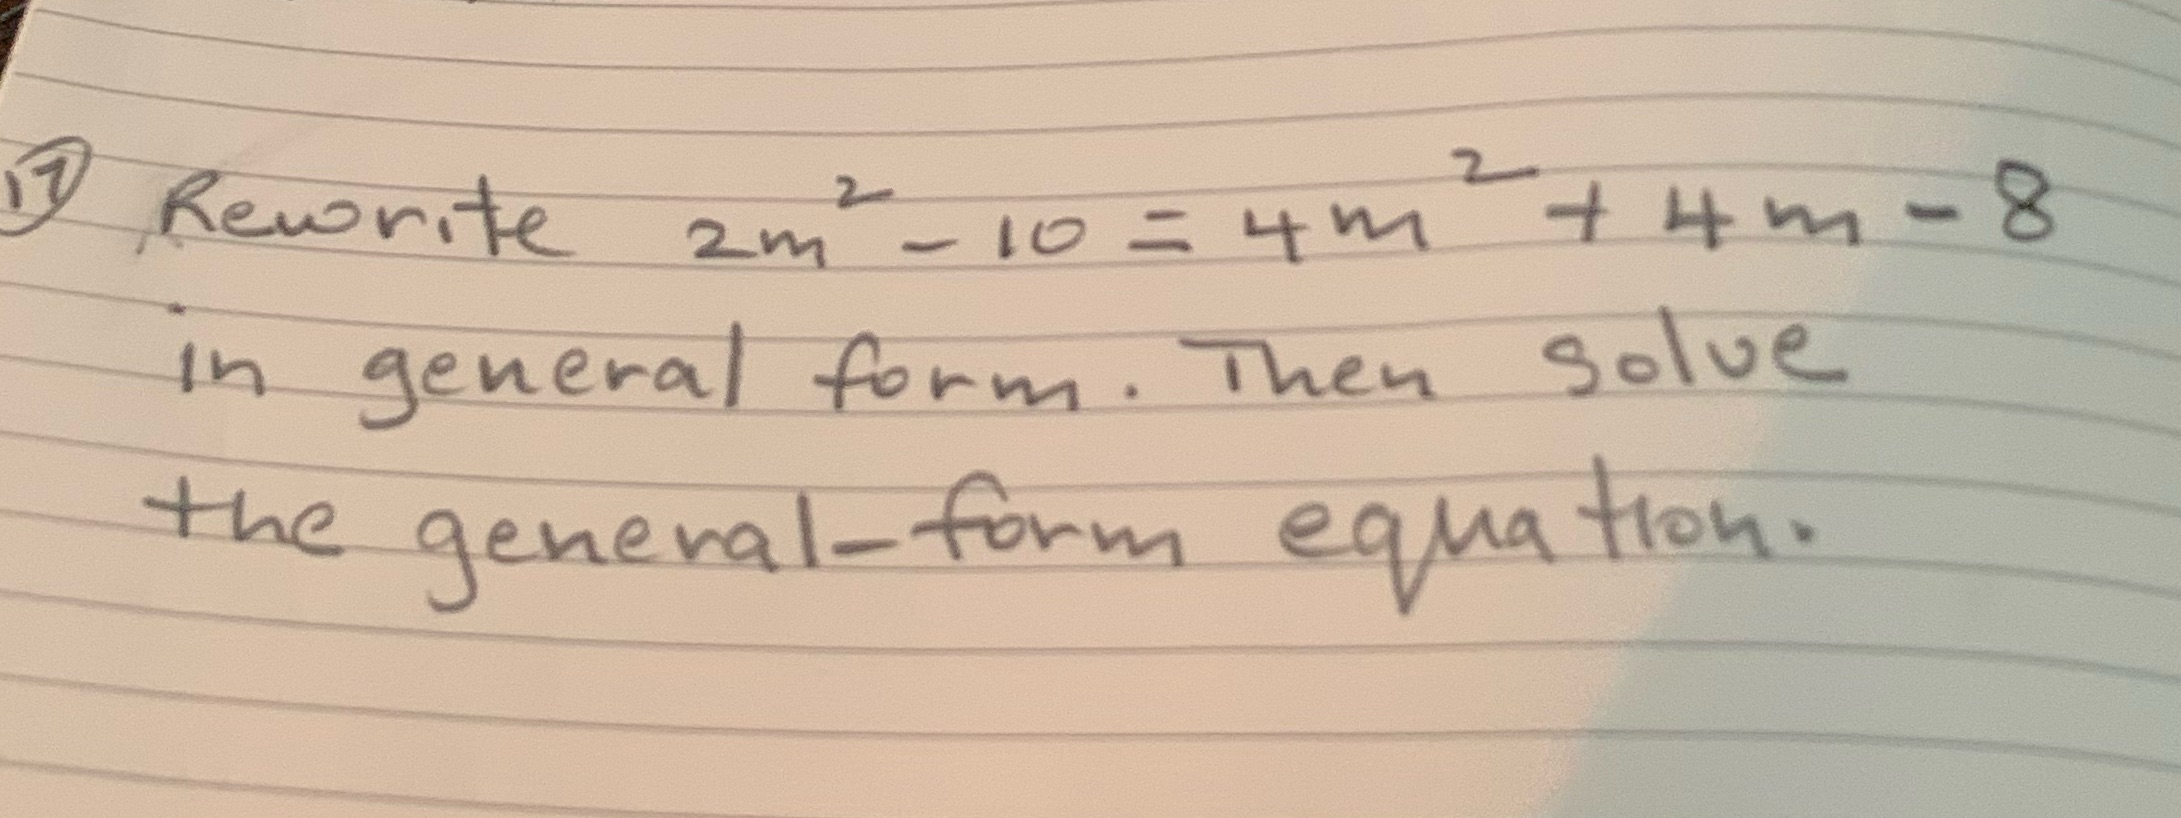 ⑰ Rewrite 2m² - 10 = 4m² + 4m - 8
in general form. Then solve
the general-form equation.